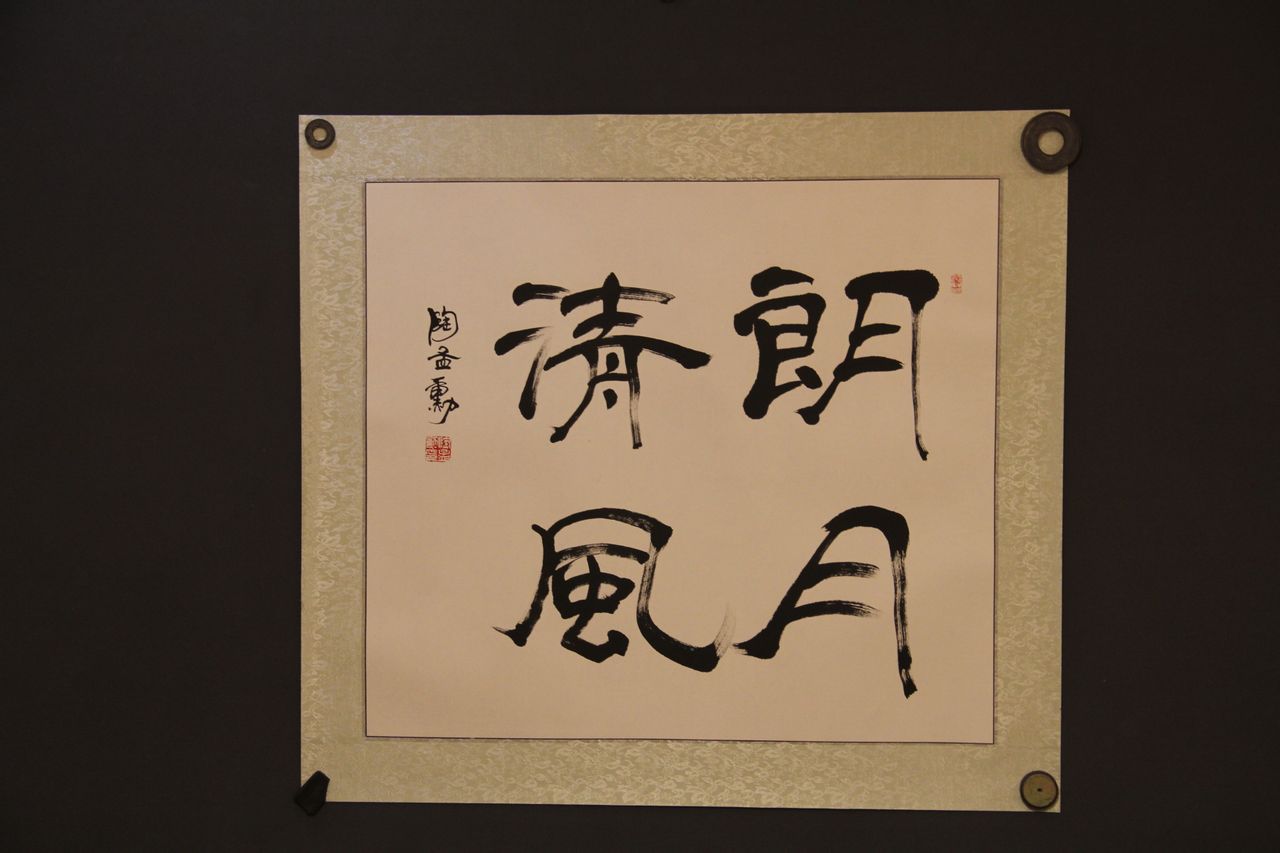 朗月
清風
陶孟勳